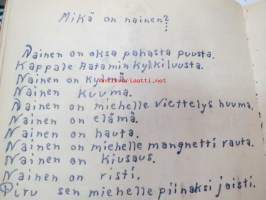 Mikä on nainen?
Nainen on oksa pahasta puusta.
Kappale Aatamin kylkiluusta.
Nainen on kyynel
Nainen kuuma.
Nainen on miehelle viettelys huuma.
Nainen on elämä.
Nainen on hauta.
Nainen on miehelle mangnetti rauta.
Nainen on kiusaus.
Nainen on risti.
Piru sen miehelle piinaksi jaisti.